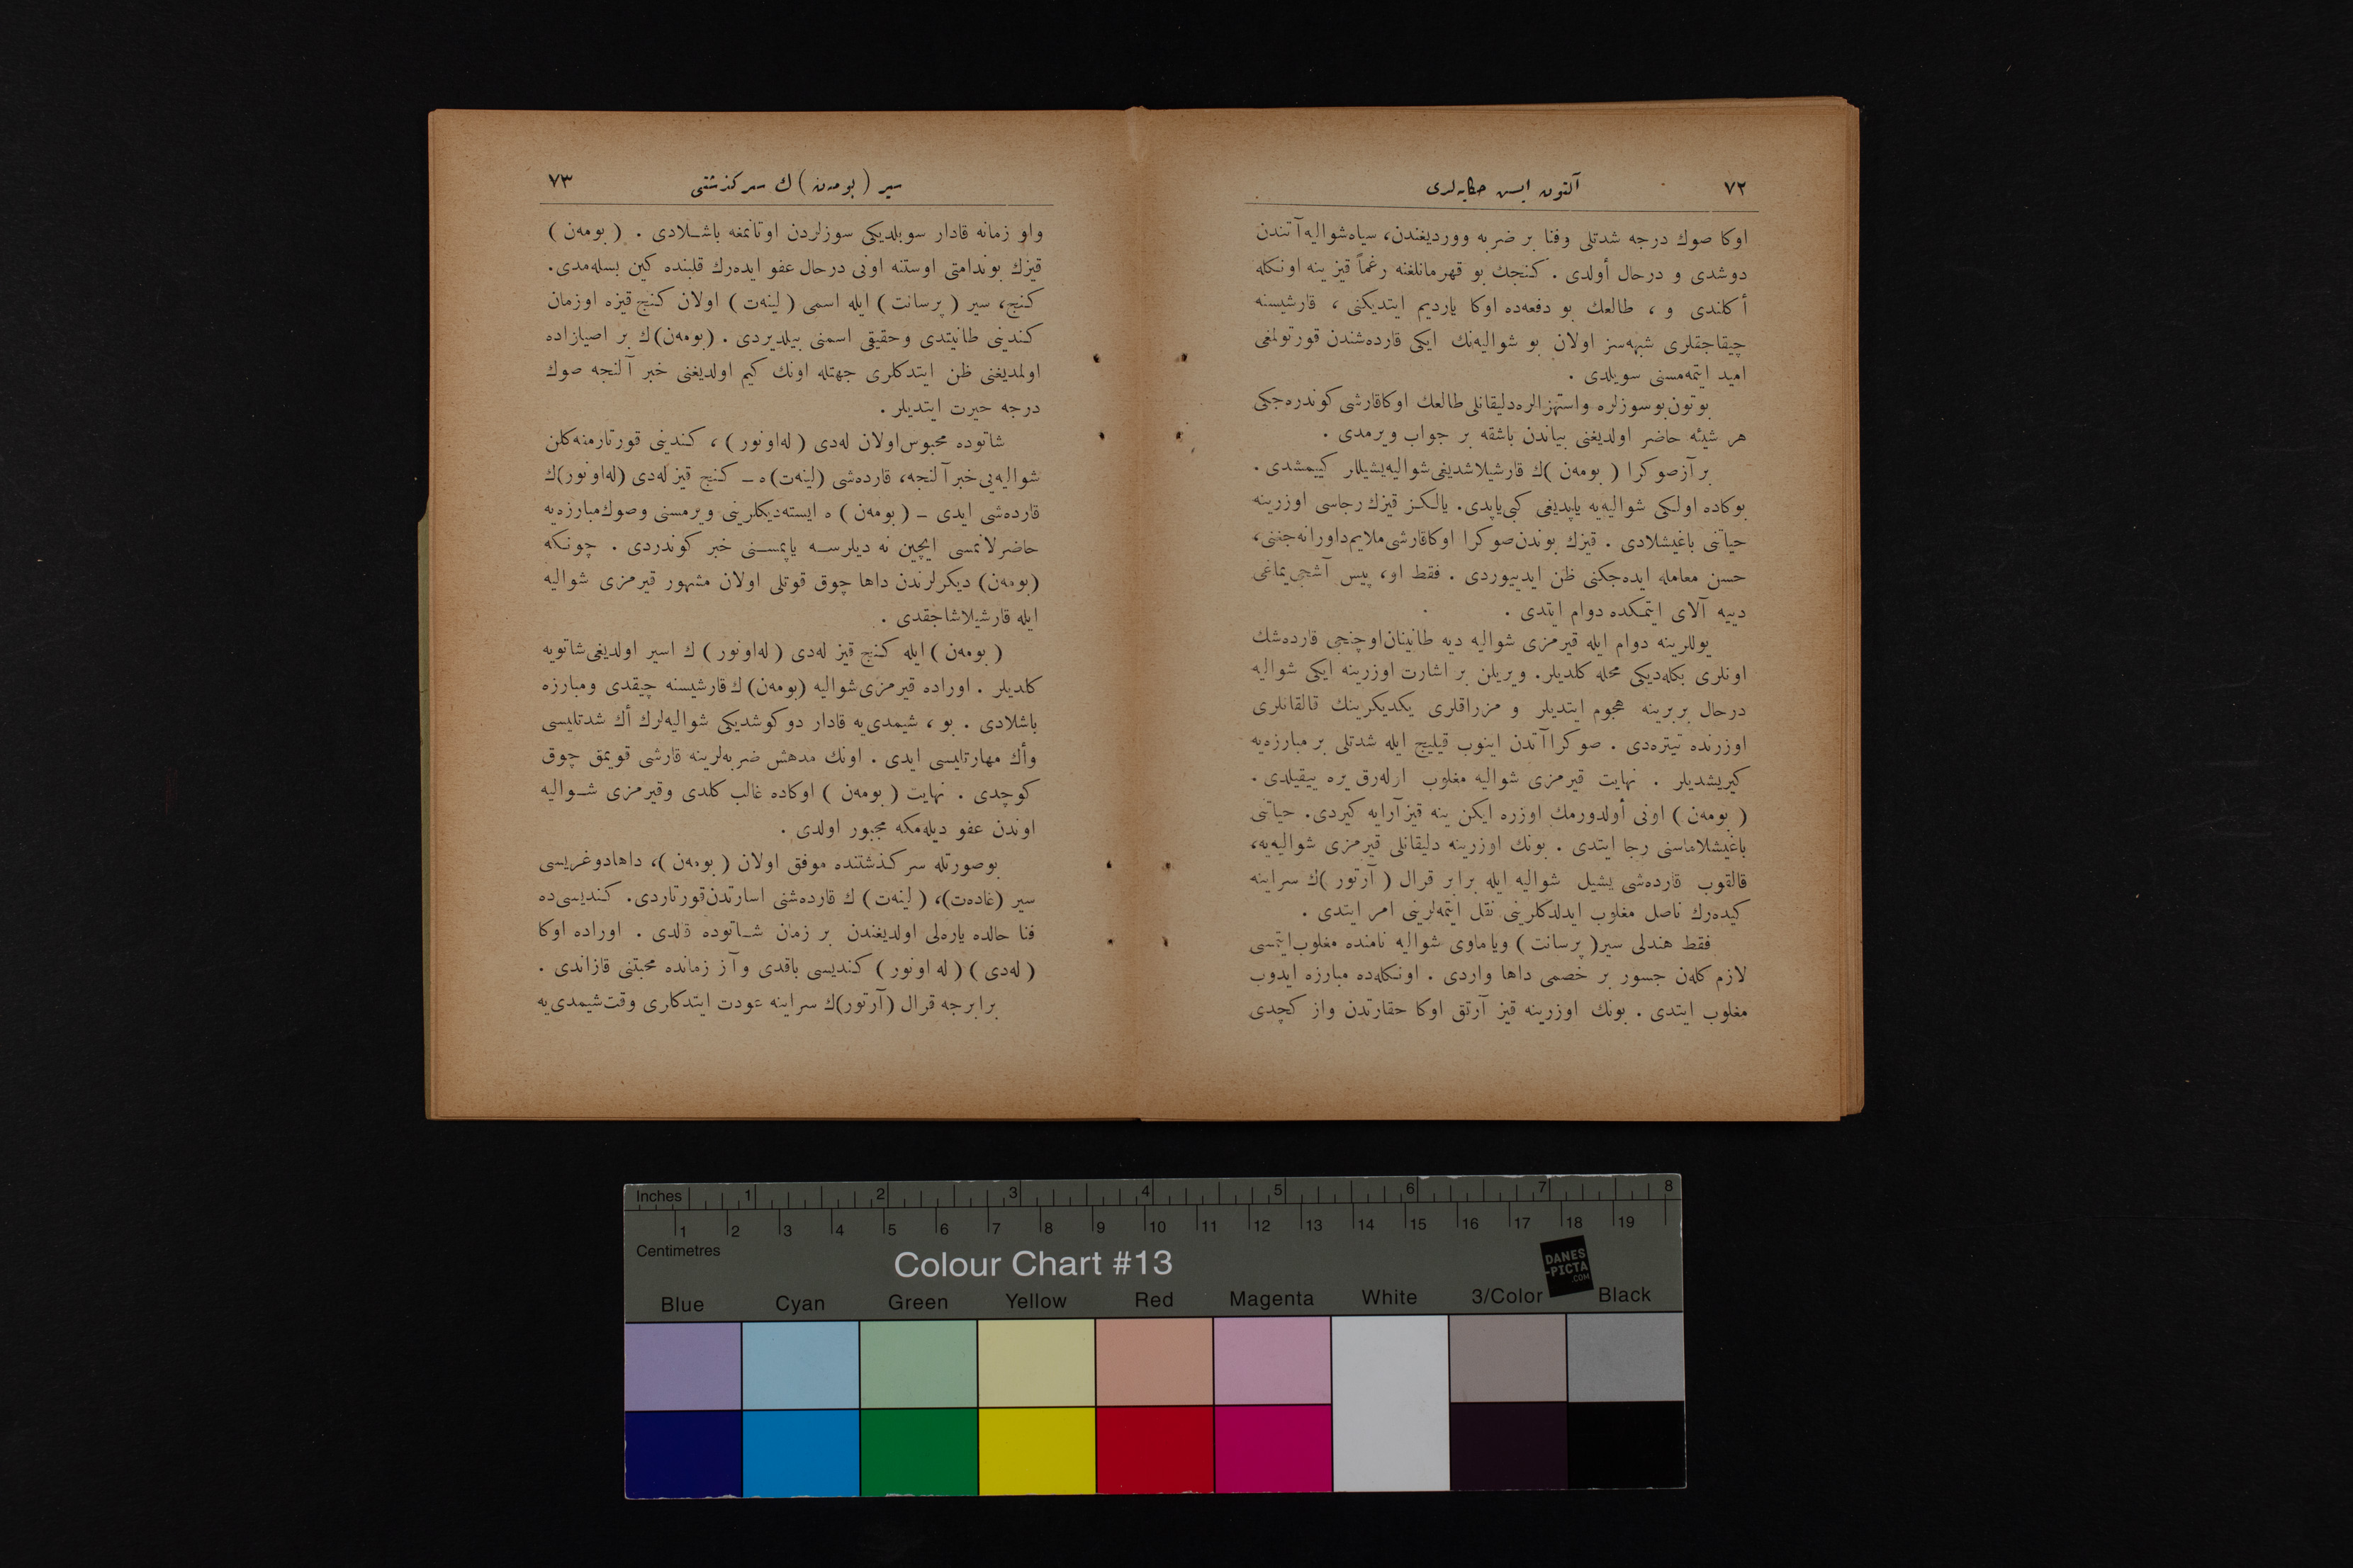 ٧٢
آلتون ایس حکایه‌لری
اوکا صوك درجه شدتلی وفنا بر ضربه ووردیغندن، سیاه‌شوالیه‌آتندن
دوشدی و درحال أولدی . کنجك بو قهرمانلغنه رغماً قیز ینه اونکله
أکلندی و ، طالعك بو دفعه‌ده اوکا یاردیم ایتدیکنی ، قارشیسنه
چیقاجقلری شبهه‌سز اولان بو شوالیه‌نك ایکی قارده‌شندن قورتولمغی
امید ایتمه‌مسنی سویلدی .
بوتون‌بوسوزلره واستهزالره‌دلیقانلی‌طالعك اوکاقارشی کوندره‌جکی
هر شیئه حاضر اولدیغنی بیاندن باشقه بر جواب ویرمدی .
بر آزصوکرا ( بومه‌ن )ك قارشیلاشدیغی‌شوالیه‌یشیللر کییمشدی .
بوکاده اولکی شوالیه‌یه یاپدیغی کبی‌یاپدی. یالکز قیزك رجاسی اوزرینه
حیاتنی باغیشلادی . قیزك بوندن‌صوکرا اوکاقارشی‌ملایم‌داورانه‌جغنی،
حسن معامله ایده‌جکنی ظن ایدییوردی . فقط او، پیس آشجی‌یماغی
دییه آلای ایتمکده دوام ایتدی .
یوللرینه دوام ایله قیرمزی شوالیه دیه طانینان‌اوچنجی قارده‌شك
اونلری بکله‌دیکی محله کلدیلر. ویریلن بر اشارت اوزرینه ایکی شوالیه
درحال بربرینه هجوم ایتدیلر و مزراقلری یکدیکرینك قالقانلری
اوزرنده تیتره‌دی . صوکراآتدن اینوب قیلیج ایله شدتلی بر مبارزه‌یه
کیریشدیلر . نهایت قیرمزی شوالیه مغلوب ارله‌رق یره ییقیلدی .
( بومه‌ن ) اونی أولدورمك اوزره ایکن ینه قیزآرایه کیردی. حیاتنی
باغیشلاماسنی رجا ایتدی . بونك اوزرینه دلیقانلی قیرمزی شوالیه‌یه،
قالقوب قارده‌شی یشیل شوالیه ایله برابر قرال ( آرتور )ك سراینه
کیده‌رك ناصل مغلوب ایدلدکلرینی نقل ایتمه‌لرینی امر ایتدی .
فقط هندلی سیر( پرسانت ) ویاماوی شوالیه نامنده مغلوب‌ایتمسی
لازم کله‌ن جسور بر خصمی داها واردی . اونکله‌ده مبارزه ایدوب
مغلوب ایتدی . بونك اوزرینه قیز آرتق اوکا حقارتدن واز کچدی
سیر ( بومه‌ن ) ك سرکذشتی
٧٣
واو زمانه قادار سویلدیکی سوزلردن اوتانمغه باشلادی . ( بومه‌ن )
قیزك بوندامتی اوستنه اونی درحال عفو ایده‌رك قلبنده کین بسله‌مدی.
کنج، سیر ( پرسانت ) ایله اسمی ( لینه‌ت ) اولان کنج قیزه اوزمان
کندینی طانیتدی وحقیقی اسمنی بیلدیردی . (بومه‌ن)ك بر اصیلزاده
اولمدیغنی ظن ایتدکلری جهتله اونك کیم اولدیغنی خبر آلنجه صوك
درجه حیرت ایتدیلر .
شاتوده محبوس‌اولان له‌دی ( له‌اونور ) ، کندینی قورتارمنه‌کلن
شوالیه‌یی‌خبرآلنجه، قارده‌شی (لینه‌ت) ه – کنج قیز له‌دی (له‌اونور)ك
قارده‌شی ایدی – ( بومه‌ن ) ه ایسته‌دیکلرینی ویرمسنی وصوك‌مبارزه‌یه
حاضرلانمسی ایچین نه دیلرسه یاپمسنی خبر کوندردی . چونکه
(بومه‌ن) دیکرلرندن داها چوق قوتلی اولان مشهور قیرمزی شوالیه
ایله قارشیلاشاجقدی .
( بومه‌ن ) ایله کنج قیز له‌دی ( له‌اونور ) ك اسیر اولدیغی‌شاتویه
کلدیلر . اوراده قیرمزی‌شوالیه (بومه‌ن)ك‌قارشیسنه چیقدی ومبارزه
باشلادی . بو ، شیمدی‌یه قادار دوکوشدیکی شوالیه‌لرك أك شدتلیسی
وأك مهارتلیسی ایدی . اونك مدهش ضربه‌لرینه قارشی قویمق چوق
کوچدی . نهایت ( بومه‌ن ) اوکاده غالب کلدی وقیرمزی شوالیه
اوندن عفو دیله‌مکه مجبور اولدی .
بوصورتله سرکذشتنده موفق اولان ( بومه‌ن )، داهادوغریسی
سیر (غاده‌ت)، ( لینه‌ت ) ك قارده‌شنی اسارتدن‌قورتاردی. کندیسی‌ده
فنا حالده یاره‌لی اولدیغندن بر زمان شاتوده قالدی . اوراده اوکا
( له‌دی ) ( له اونور ) کندیسی باقدی و آز زمانده محبتنی قازاندی .
برابرجه قرال (آرتور)ك سراینه عودت ایتدکلری وقت‌شیمدی‌یه
Inches 1 2 3 4 5 6 7 8
1 2 3 4 5 6 7 8 9 10 11 12 13 14 15 16 17 18 19
Centimetres
Colour Chart #13
DANES
-PICTA
.COM
Blue Cyan Green Yellow Red Magenta White 3/Color Black